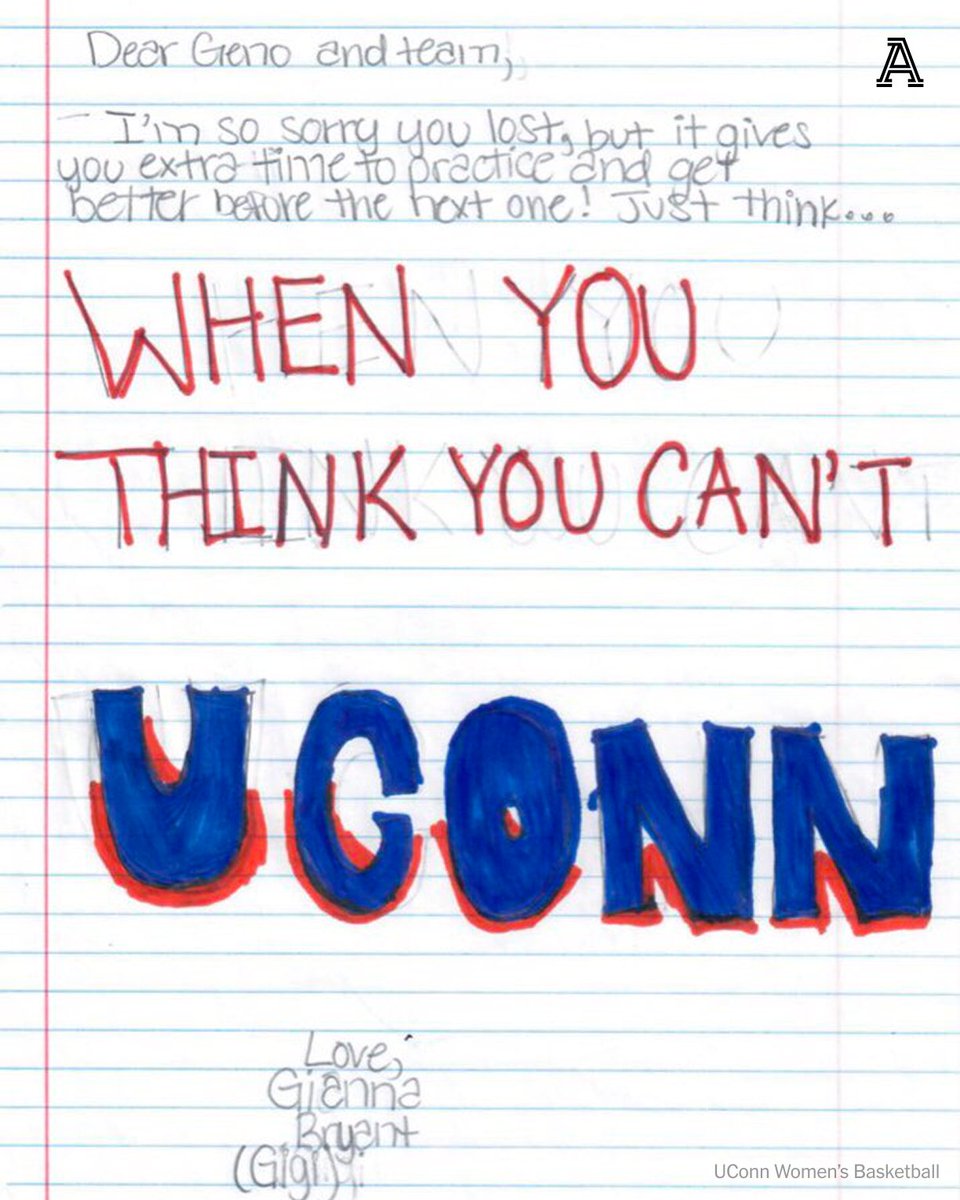 Dear Geno and team,
A
I'm so sorry you lost, but it gives
you extra time to practice and get
better before the next one! Just think...
WHEN YOU
THINK YOU CAN'T
UCONN
Love,
Gianna
Bryant
(Gigi)
UConn Women's Basketball